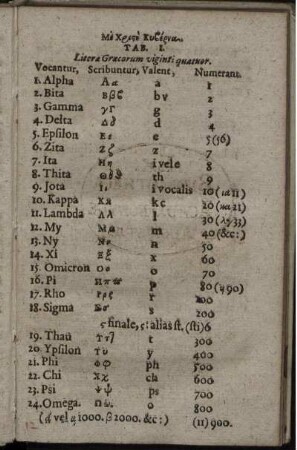 TAB. I.
Literæ Græcorum viginti quatuor.
Vocantur, Scribuntur, Valent, Numerant.
1. Alpha Αα a 1
2. Bita Ββϐ bv 2
3. Gamma γΓ g 3
4. Delta Δδ d 4
5. Epsilon Εε e 5
6. Zita Ζζ z 7
7. Ita Ηη i vel e 8
8. Thita Θθϑ th 9
9. Jota Ιι i vocalis 10 (ια 11)
10. Kappa Κκ kc 20
11. Lambda Λλ l 30 (λγ 33)
12. My Μμ m 40 (&c:)
13. Ny Νν n 50
14. Xi Ξξ x 60
15. Omicron Οο o 70
16. Pi Ππϖ p 80 (ϥ 90)
17. Rho ρϱ r 100
18. Sigma Σσ s 200
ς finale, ϛ: alias st. (sti) 6
19. Thau Ττ t 300
20. Ypsilon Υυ y 400
21. Phi Φφ ph 500
22. Chi Χχ ch 600
23. Psi Ψψ ps 700
24. Omega. Ωω o 800
1000. β 2000. &c:) 900.